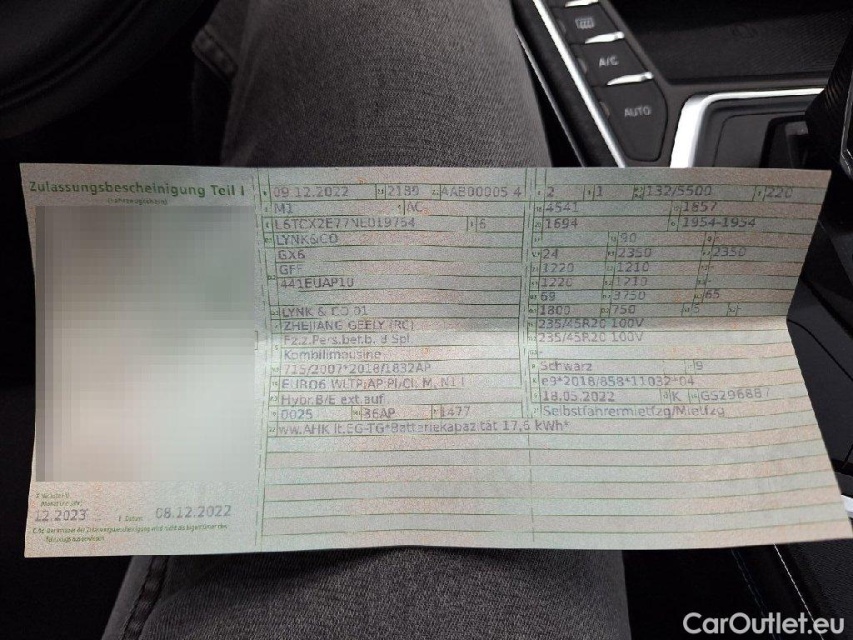 A/C
AUTO
Zulassungsbescheinigung Teil I
09.12.2022 2189 AAB00005 4 2 1 132/5500 220
M1 AC 4541 1857
L6TCX2E77NE019754 6 1694 1954-1954
LYNK&CO 90
GX6 24 2350 2350
GFF 1220 1210
441EUAP10 1220 1210
69 3750 65
LYNK & CO 01 1800 750
ZHEJIANG GEELY (RC) 235/45R20 100V
Fz.z.Pers.bef.b. 8 Spl 235/45R20 100V
Kombilimousine
715/2007*2018/1832AP Schwarz 9
EURO6 WLTP;AP;PI/CI; M, N1 I e9*2018/858*11032*04
Hybr.B/E ext.auf 18.05.2022 K
0025 36AP 1477 Selbstfahrermietfzg/Mietfzg
ww.AHK lt.EG-TG*Batteriekapazität 17,6 kWh*
12.2023 08.12.2022
CarOutlet.eu